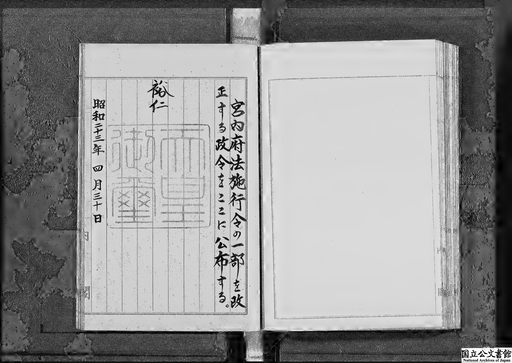 宮内府法施行令の一部を改
正する政令をここに公布する。
裕仁
天皇
御璽
昭和二十三年四月三十日
国立公文書館
National Archives of Japan